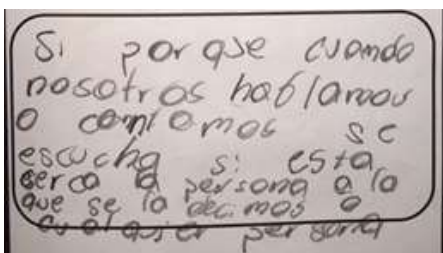 Si por que cuando
nosotros hablamos
o cantamos se
escucha si esta
serca a persona a la
que se lo decimos o
cualquier persona